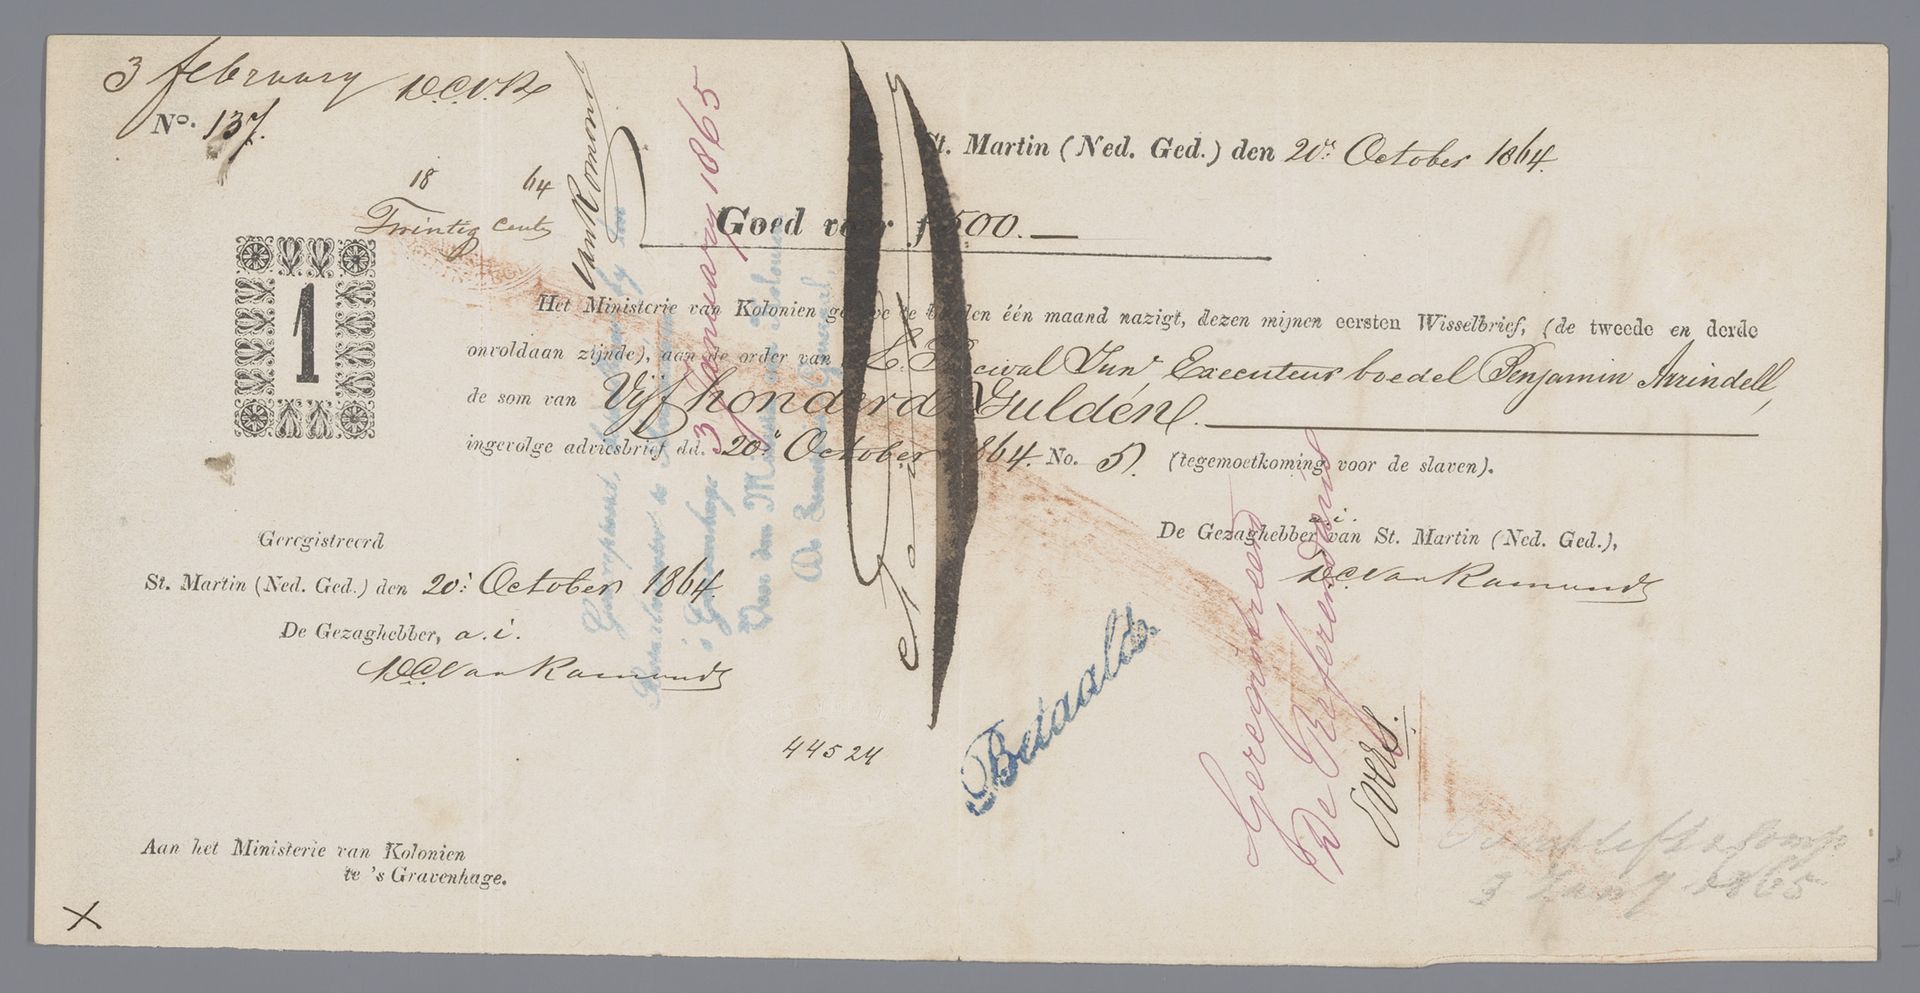 3 february
N°. 137.
18 64
Twintig cents
1
St. Martin (Ned. Ged.) den 20n October 1864.
Goed voor f 500.
Het Ministerie van Kolonien gelieve te betalen één maand nazigt, dezen mijnen eersten Wisselbrief, (de tweede en derde
onvoldaan zijnde), aan de order van L. Percival Junr Executeur boedel Benjamin Arrindell,
de som van Vijfhonderd Gulden.
ingevolge adviesbrief dd. 20n October 1864. No. 5. (tegemoetkoming voor de slaven).
Geregistreerd
St. Martin (Ned. Ged.) den 20n October 1864.
De Gezaghebber, a. i.
De Gezaghebber van St. Martin (Ned. Ged.),
a. i.
van Romondt
van Romondt
van Romondt
3 January 1865
Voor den Minister van Kolonien
Generaal,
's Gravenhage
Betaald
Geregistreerd
De Referendaris
Evers.
44524
Aan het Ministerie van Kolonien
te 's Gravenhage.
3 Jany 1865
X